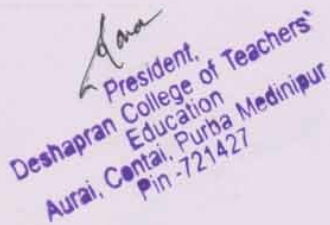 President,
Deshapran College of Teachers'
Education
Aurai, Contai, Purba Medinipur
Pin -721427